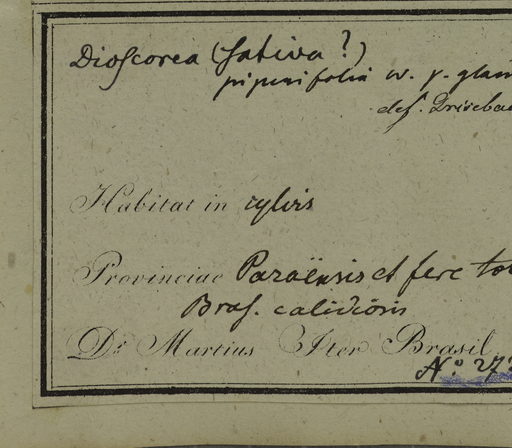 Dioscorea (sativa?)
piperifolia W. γ. glan
det. Grisebac
Habitat in sylvis
Provinciae Paraënsis et fere tot
Bras. calidioris
Dr. Martius Iter Brasil
N.º 27